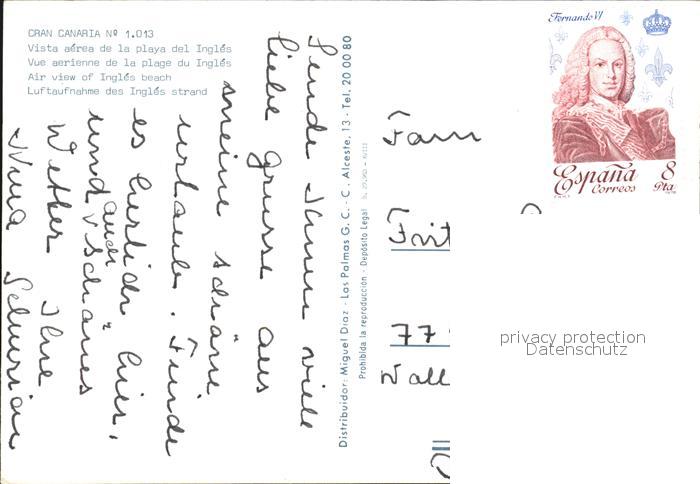 GRAN CANARIA Nº 1.013
Vista aérea de la playa del Inglés
Vue aerienne de la plage du Inglés
Air view of Inglés beach
Luftaufnahme des Inglés strand
Sende Ihnen viele
liebe Grüsse aus
meine schöne
urlaub. Finde
es herlich hier,
und auch schönes
Wetter Ihre
Distribuidor: Miguel Diaz - Las Palmas G. C. - C. Alceste, 13 - Tel. 20 00 80
Prohibida la reproducción - Depósito Legal
Fam
Frit
77
Wall
Fernando VI
España 8
Correos Pta
privacy protection
Datenschutz